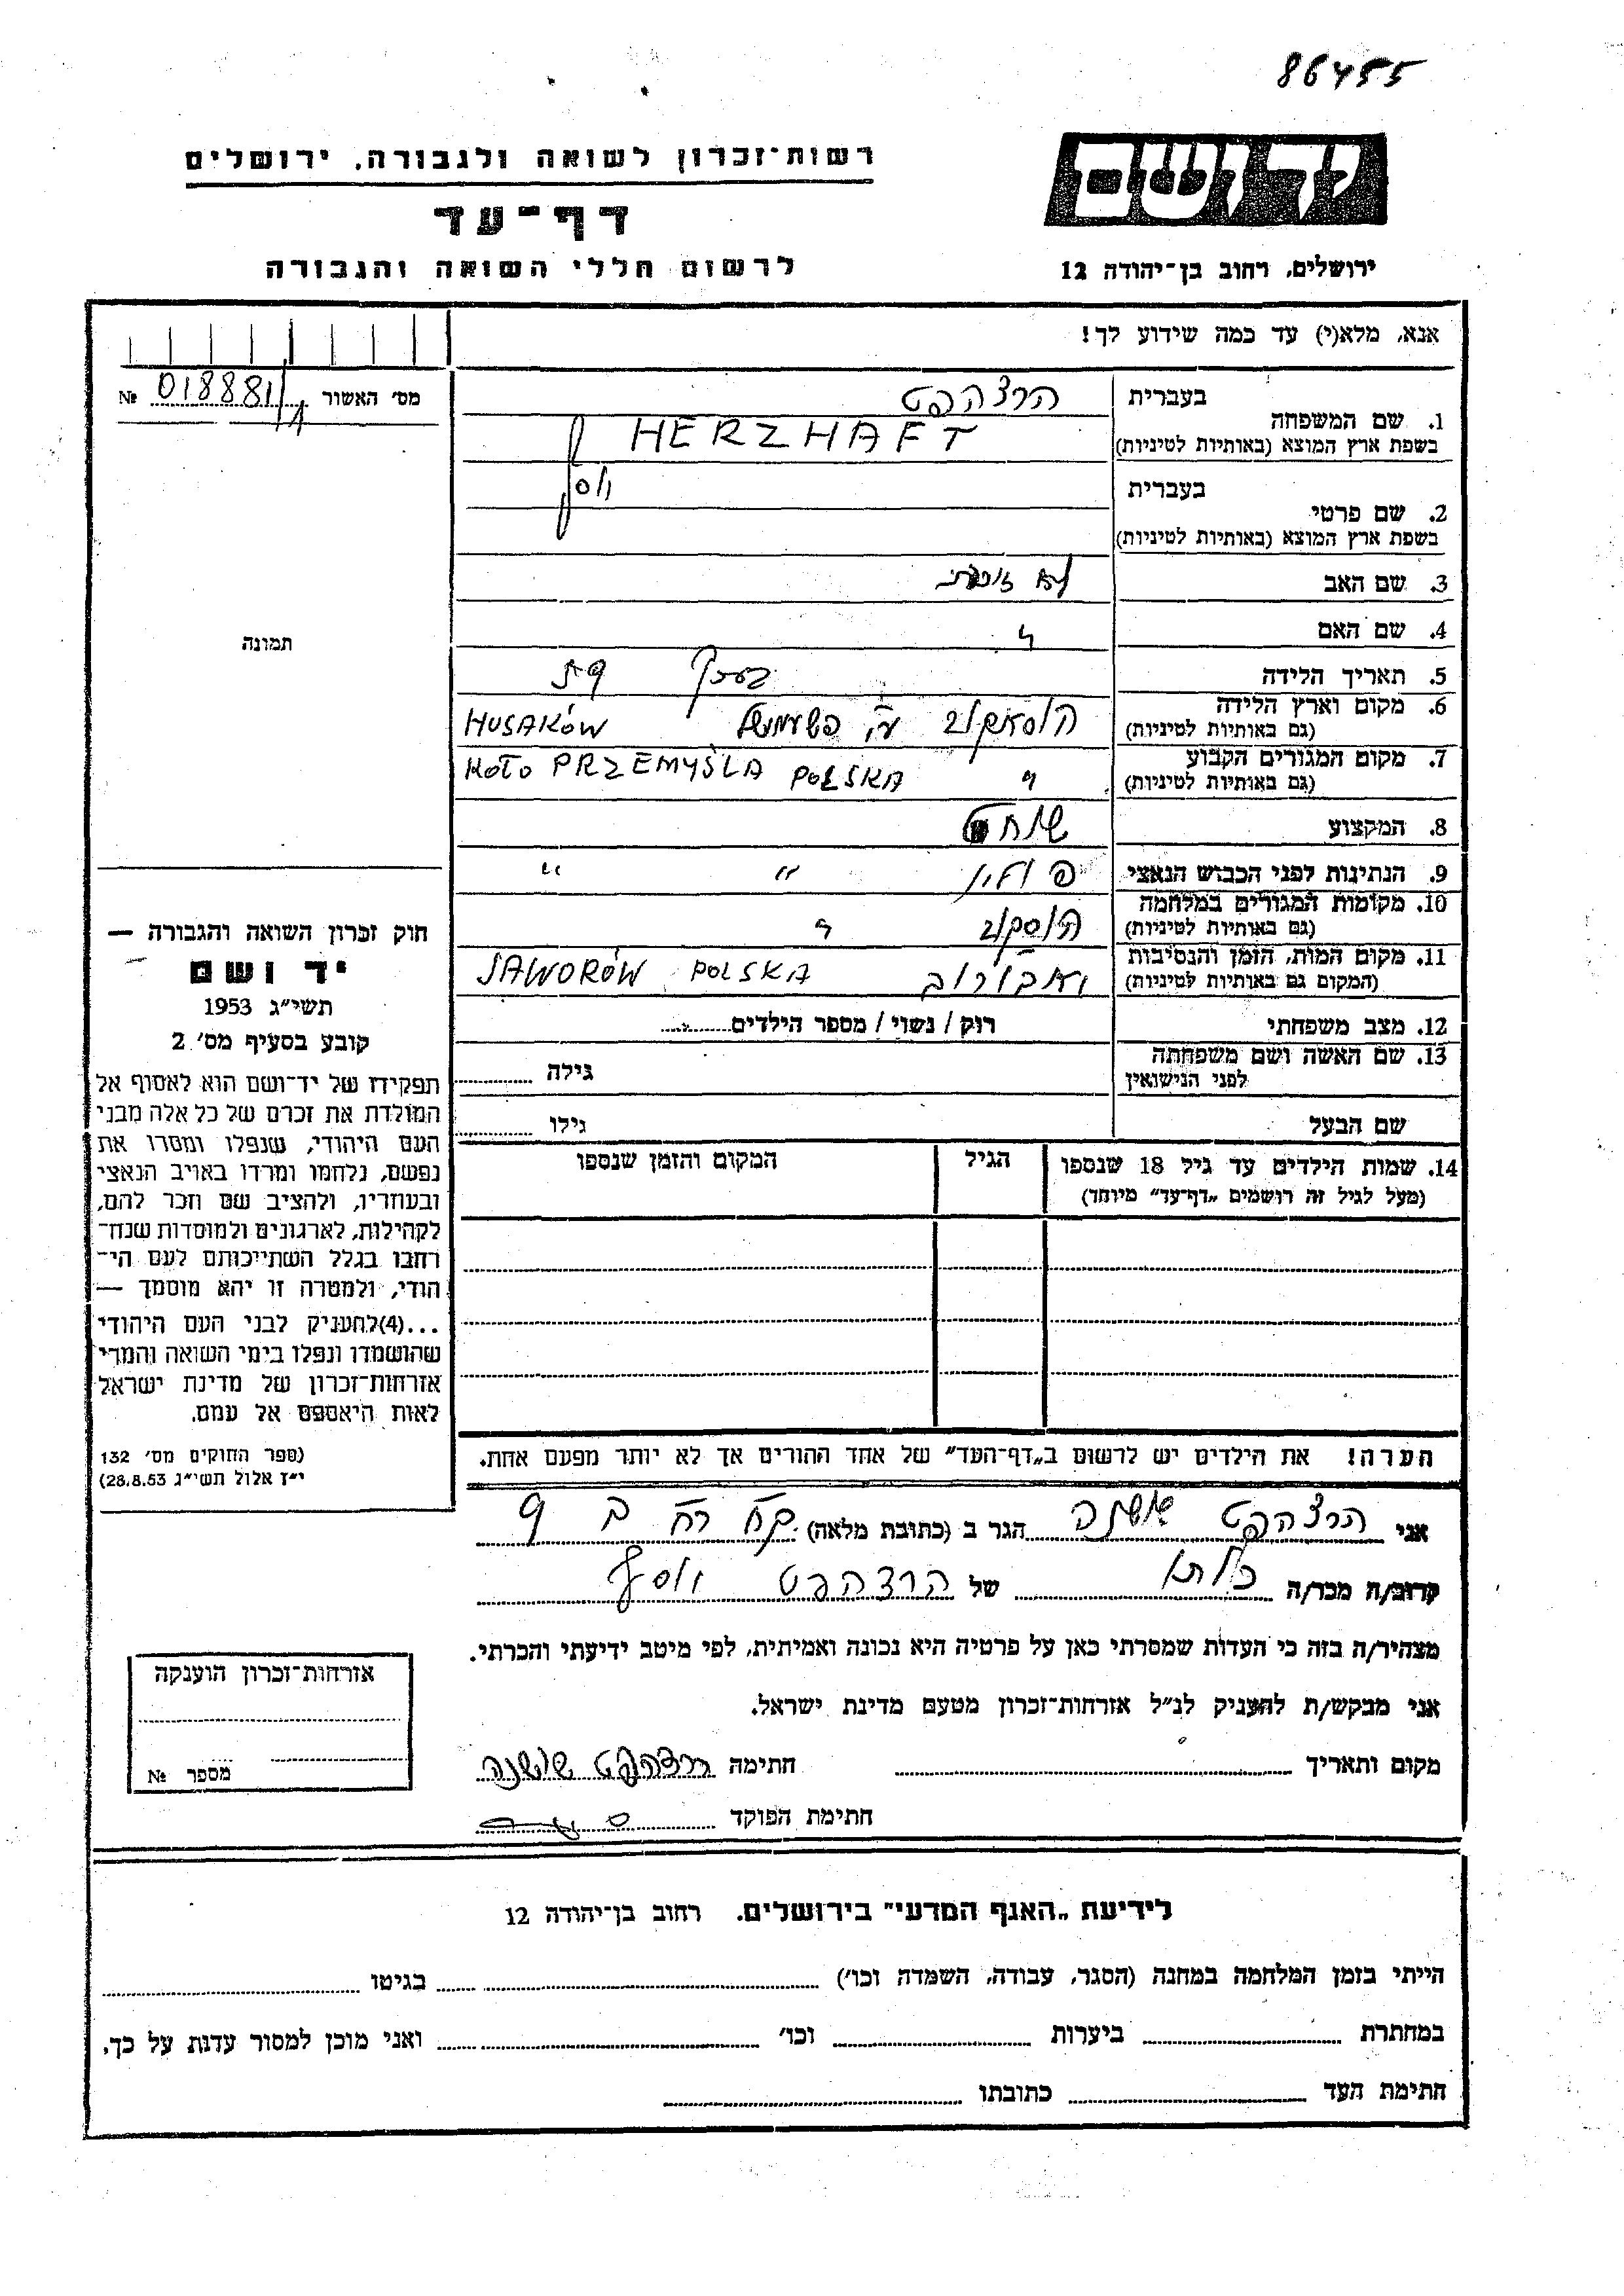 86455
יד ושם
רשות־זכרון לשואה ולגבורה, ירושלים
דף־עד
לרשום חללי השואה והגבורה
ירושלים, רחוב בן־יהודה 12
אנא, מלא(י) עד כמה שידוע לך!
מס׳ האשור 018881 №
1. שם המשפחה
בעברית הרצהפט
בשפת ארץ המוצא (באותיות לטיניות) HERZHAFT
2. שם פרטי
בעברית יוסף
בשפת ארץ המוצא (באותיות לטיניות)
3. שם האב לא
4. שם האם "
5. תאריך הלידה בערך
6. מקום וארץ הלידה
(גם באותיות לטיניות) HUSAKÓW
7. מקום המגורים הקבוע
(גם באותיות לטיניות) " KOŁO PRZEMYŚLA POLSKA
8. המקצוע שוחט
9. הנתינות לפני הכבוש הנאצי פולין " "
10. מקומות המגורים במלחמה
(גם באותיות לטיניות) הוסקוב "
11. מקום המות, הזמן והנסיבות
(המקום גם באותיות לטיניות) יאבורוב JAWORÓW POLSKA
12. מצב משפחתי רוק / נשוי / מספר הילדים
13. שם האשה ושם משפחתה
לפני הנישואין גילה
שם הבעל גילו
14. שמות הילדים עד גיל 18 שנספו הגיל המקום והזמן שנספו
(מעל לגיל זה רושמים „דף־עד” מיוחד)
הערה! את הילדים יש לרשום ב„דף־העד” של אחד ההורים אך לא יותר מפעם אחת.
תמונה
חוק זכרון השואה והגבורה —
יד ושם
תשי״ג 1953
קובע בסעיף מס׳ 2
תפקידו של יד־ושם הוא לאסוף אל
המולדת את זכרם של כל אלה מבני
העם היהודי, שנפלו ומסרו את
נפשם, נלחמו ומרדו באויב הנאצי
ובעוזריו, ולהציב שם וזכר להם,
לקהילות, לארגונים ולמוסדות שנח־
רחבו בגלל השתייכותם לעם הי־
הודי, ולמטרה זו יהא מוסמך —
...(4)להעניק לבני העם היהודי
שהושמדו ונפלו בימי השואה והמרי
אזרחות־זכרון של מדינת ישראל
לאות היאספם אל עמם.
(ספר החוקים מס׳ 132
י״ז אלול תשי״ג 28.8.53)
אני הרצהפט שושנה הגר ב (כתובת מלאה)
קרוב/ה מכר/ה כלתו של הרצהפט יוסף
מצהיר/ה בזה כי העדות שמסרתי כאן על פרטיה היא נכונה ואמיתית, לפי מיטב ידיעתי והכרתי.
אני מבקש/ת להעניק לנ״ל אזרחות־זכרון מטעם מדינת ישראל.
מקום ותאריך חתימה הרצהפט שושנה
חתימת הפוקד
אזרחות־זכרון הוענקה
מספר №
לידיעת „האגף המדעי” בירושלים, רחוב בן־יהודה 12
הייתי בזמן המלחמה במחנה (הסגר, עבודה, השמדה וכו׳) בגיטו
במחתרת ביערות וכו׳ ואני מוכן למסור עדות על כך.
חתימת העד כתובתו